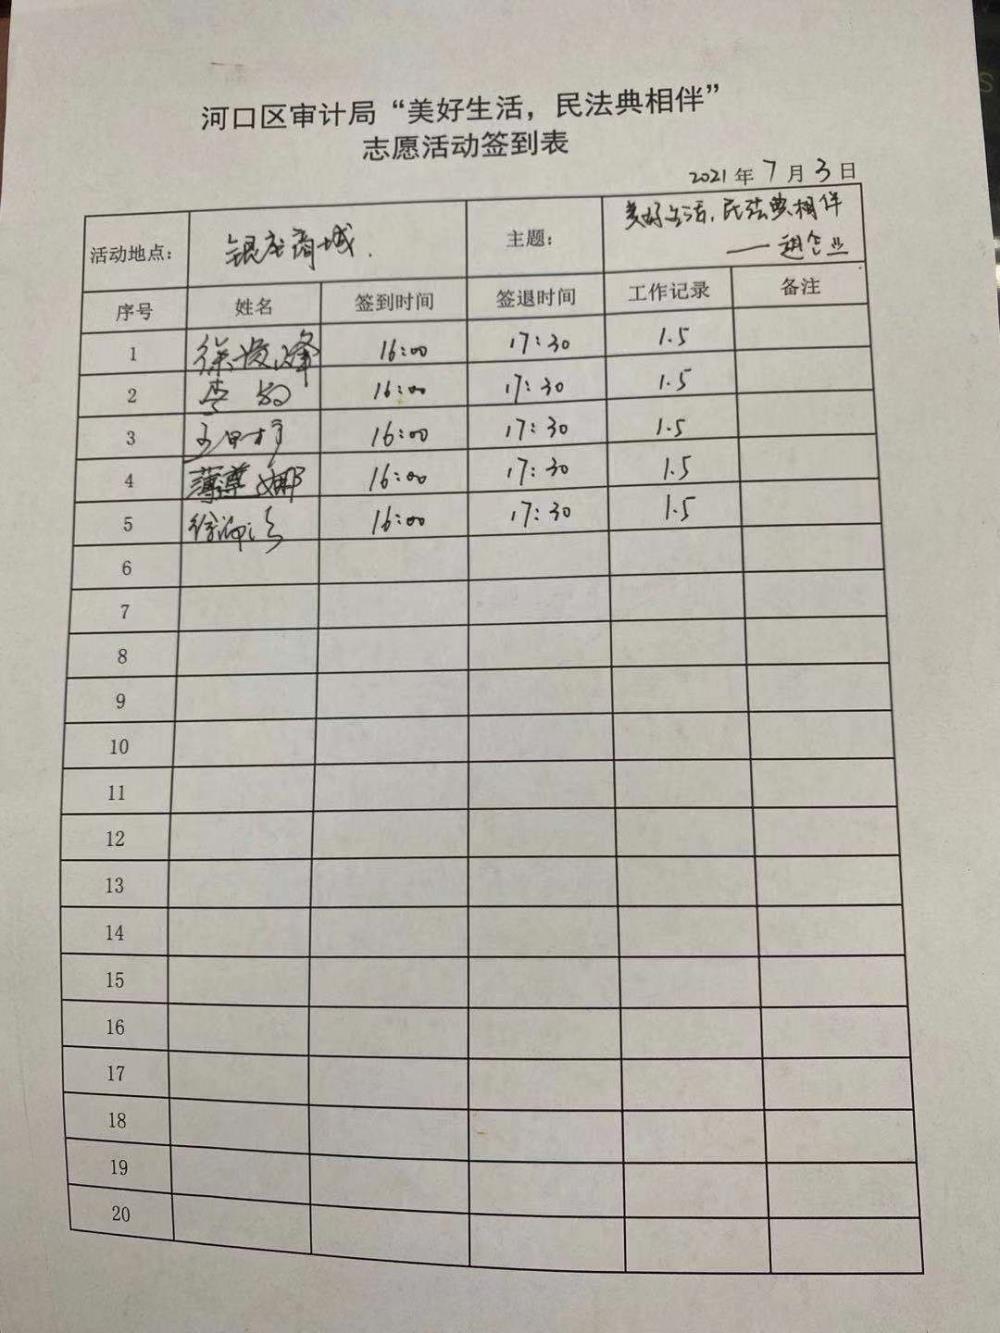 河口区审计局“美好生活，民法典相伴”
志愿活动签到表
2021年7月3日
活动地点： 银座商城. 主题： 美好生活，民法典相伴
——进企业
序号 姓名 签到时间 签退时间 工作记录 备注
1 徐 峰 16:00 17:30 1.5
2 李 16:00 17:30 1.5
3 16:00 17:30 1.5
4 薄 娜 16:00 17:30 1.5
5 徐 16:00 17:30 1.5
6
7
8
9
10
11
12
13
14
15
16
17
18
19
20